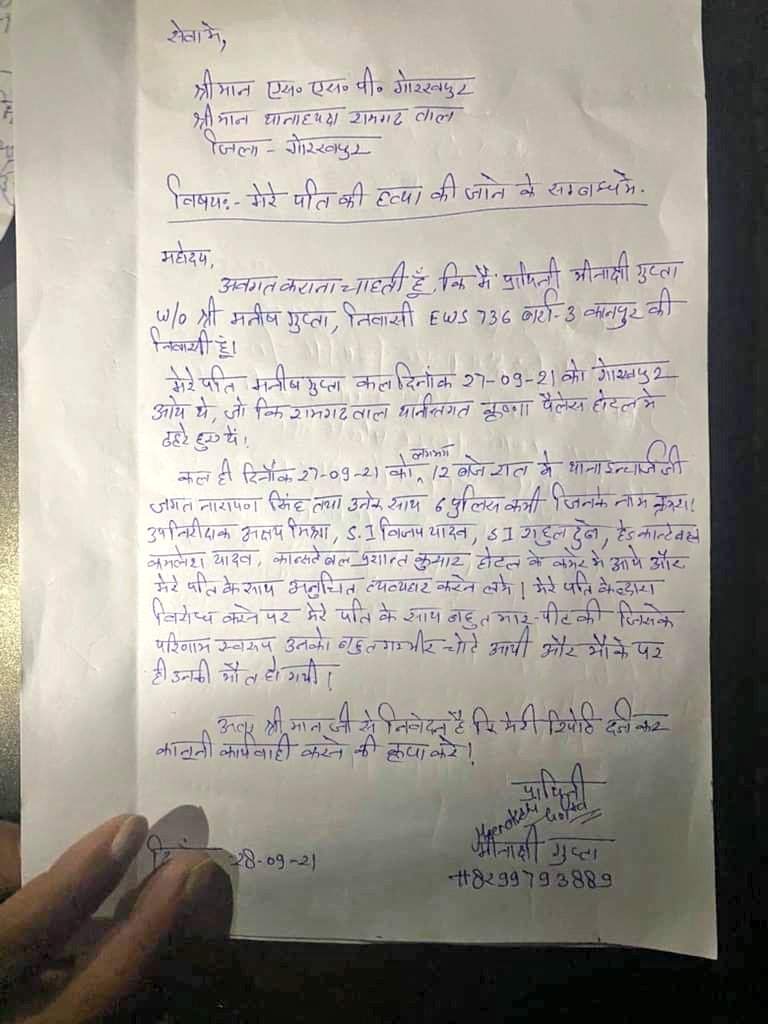 सेवा में,
श्रीमान एस॰ एस॰ पी॰ गोरखपुर
श्रीमान थानाध्यक्ष रामगढ ताल
जिला - गोरखपुर
विषय:- मेरे पति की हत्या की जाने के सम्बन्ध में.
महोदय,
अवगत कराना चाहती हूँ, कि मैं प्रार्थिनी मीनाक्षी गुप्ता
w/o श्री मनीष गुप्ता, निवासी EWS 736 बर्रा-3 कानपुर की
निवासी हूँ।
मेरे पति मनीष गुप्ता कल दिनाँक 27-09-21 को गोरखपुर
आये थे, जो कि रामगढ ताल थानान्तगत कृष्णा पैलेस होटल मे
ठहरे हुए थे।
कल ही दिनाँक 27-09-21 को लगभग 12 बजे रात मे थाना इन्चार्ज जी
जगत नारायण सिंह तथा उनके साथ 6 पुलिस कर्मी जिनके नाम क्रमशः
उपनिरीक्षक अक्षय मिश्रा, S.I विजय यादव, S I राहुल दुबे, हेड कान्टेबल
कमलेश यादव, कान्सटेबल प्रशान्त कुमार होटल के कमरे मे आये और
मेरे पति के साथ अनुचित व्यव्हार करने लगे। मेरे पति के द्वारा
विरोध करने पर मेरे पति के साथ बहुत मार-पीट की जिसके
परिणाम स्वरूप उनको बहुत गम्भीर चोटे आयी और मौके पर
ही उनकी मौत हो गयी।
अतः श्रीमान जी से निवेदन है कि मेरी रिपोर्ट दर्ज कर
कानूनी कार्यवाही करने की कृपा करे।
प्रार्थिनी
Meenakshi Gupta
मीनाक्षी गुप्ता
#8299793889
28-09-21